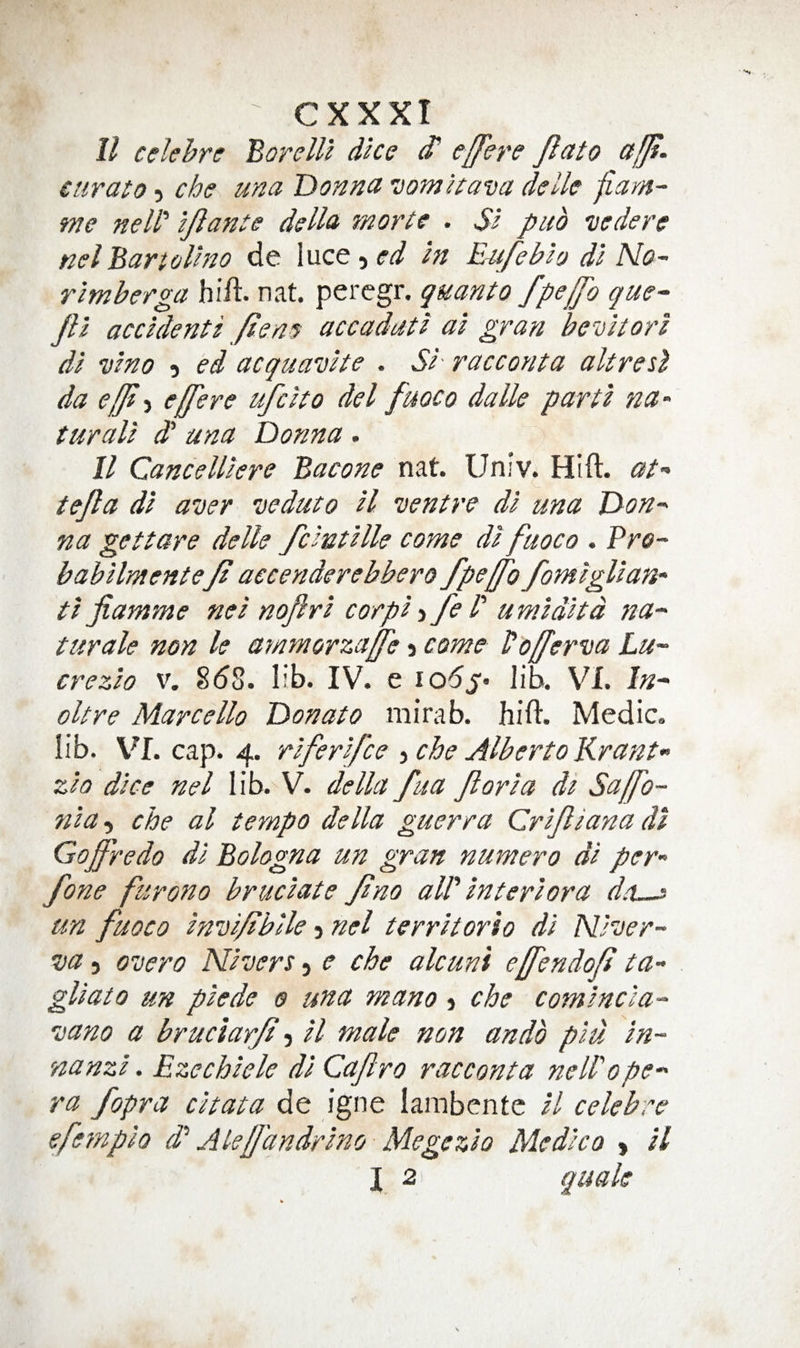 CXXXI
Il celebre Borelli dice d' eſſere ſtato aſſi-
curato, che una Donna vomitava delle fiam-
me nell' iſtante della morte . Si può vedere
nel Bartolino de luce, ed in Euſebio di No-
rimberga hiſt. nat. peregr. quanto ſpeſſo que-
ſti accidenti ſieno accaduti ai gran bevitori
di vino , ed acquavite . Si racconta altresì
da eſſi, eſſere uſcito del fuoco dalle parti na-
turali d' una Donna .
Il Cancelliere Bacone nat. Univ. Hiſt. at-
teſta di aver veduto il ventre di una Don-
na gettare delle ſcintille come di fuoco . Pro-
babilmente ſi accenderebbero ſpeſſo ſomiglian-
ti fiamme nei noſtri corpi, ſe l' umidità na-
turale non le ammorzaſſe, come l'oſſerva Lu-
crezio v. 868. lib. IV. e 1065. lib. VI. In-
oltre Marcello Donato mirab. hiſt. Medic.
lib. VI. cap. 4. riferiſce , che Alberto Krant-
zio dice nel lib. V. della ſua ſtoria di Saſſo-
nia, che al tempo della guerra Criſtiana di
Goffredo di Bologna un gran numero di per-
ſone furono bruciate ſino all' interiora da
un fuoco inviſibile, nel territorio di Niver-
va, overo Nivers, e che alcuni eſſendoſi ta-
gliato un piede o una mano, che comincia-
vano a bruciarſi, il male non andò più in-
nanzi. Ezechiele di Caſtro racconta nell'ope-
ra ſopra citata de igne lambente il celebre
eſempio d' Aleſſandrino Megezio Medico , il
I 2 quale